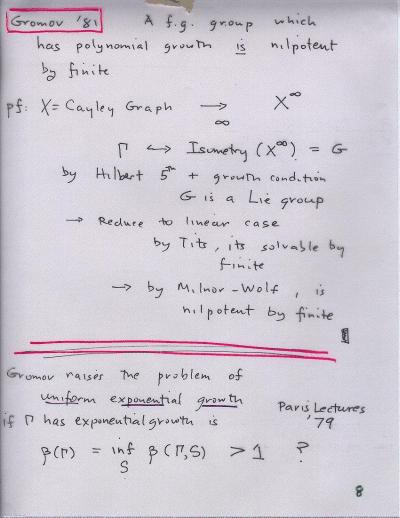 Gromov '81 A f.g. group which
has polynomial growth is nilpotent
by finite
pf: X = Cayley Graph → X^∞
∞
Γ ↔ Isometry (X^∞) = G
by Hilbert 5th + growth condition
G is a Lie group
→ Reduce to linear case
by Tits, its solvable by
finite
→ by Milnor-Wolf, is
nilpotent by finite
Gromov raises the problem of
uniform exponential growth
Paris Lectures
'79
if Γ has exponential growth is
β(Γ) = inf β(Γ,S) > 1 ?
S
8